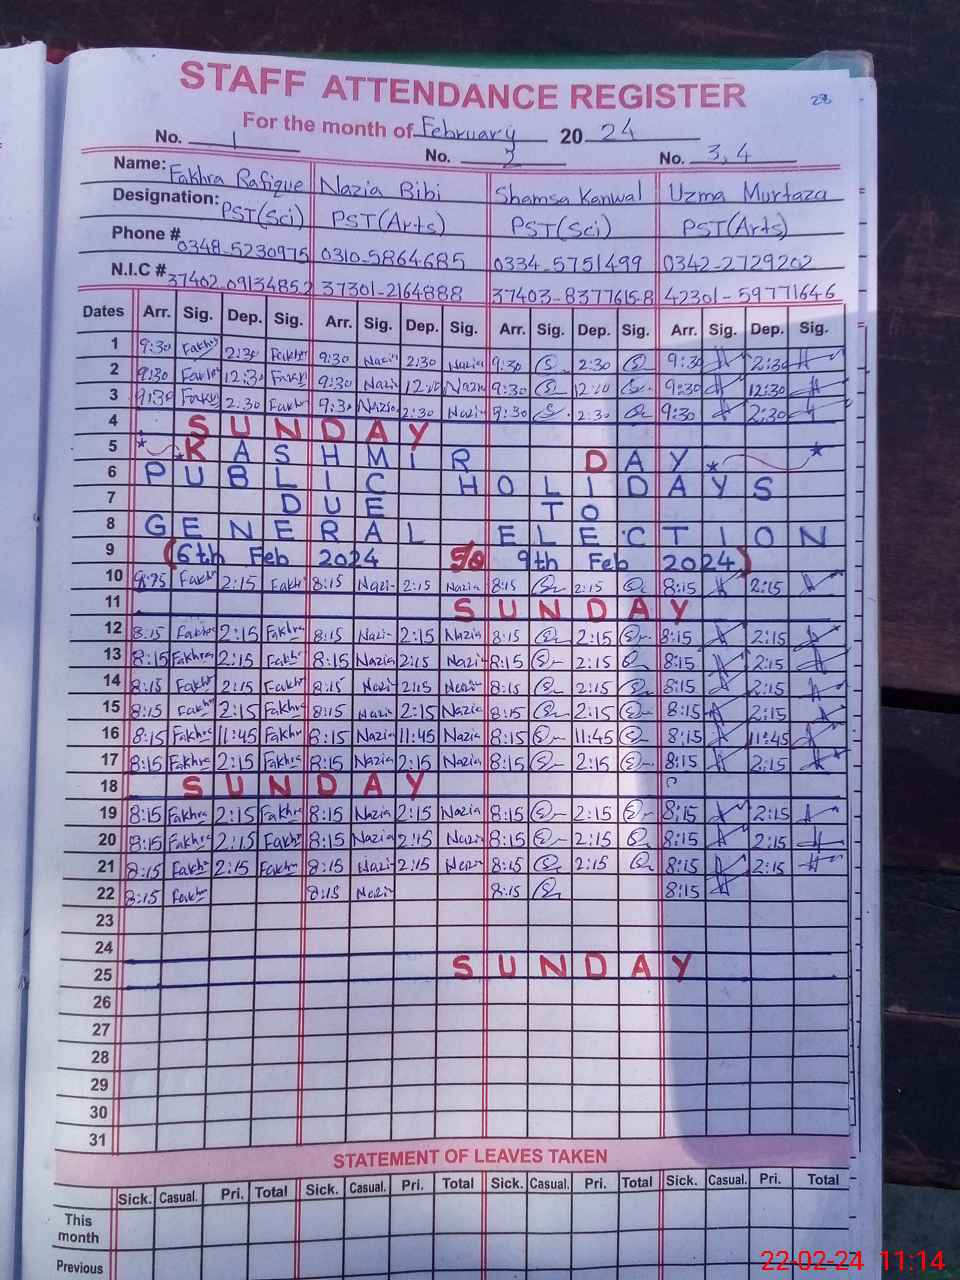 STAFF ATTENDANCE REGISTER
28
For the month of February 2024
No. 1 No. 2 No. 3, 4
Name: Fakhra Rafique Nazia Bibi Shamsa Kanwal Uzma Murtaza
Designation: PST(Sci) PST(Arts) PST(Sci) PST(Arts)
Phone # 0348-5230975 0310-5864685 0334-5751499 0342-2729202
N.I.C # 37402-09134852 37301-2164888 37403-8377615-8 42301-59771646
Dates Arr. Sig. Dep. Sig. Arr. Sig. Dep. Sig. Arr. Sig. Dep. Sig. Arr. Sig. Dep. Sig.
1 9:30 Fakhr 2:30 Fakhr 9:30 Nazi 2:30 Nazia 9:30 2:30 9:30 2:30
2 9:30 12:30 9:30 Nazi Nazi 9:30 9:30 12:30
3 9:30 2:30 Fakhr 9:30 Nazia 2:30 Nazi 9:30 2:30 9:30 2:30
4 SUNDAY
5 KASHMIR DAY
6 PUBLIC HOLIDAYS
7 DUE TO
8 GENERAL ELECTION
9 (6th Feb 2024 9th Feb 2024)
10 Fakh 2:15 Fakhr 8:15 Nazi 2:15 Nazia 8:15 2:15 8:15 2:15
11 SUNDAY
12 8:15 Fakhra 2:15 Fakhra 8:15 Nazi 2:15 Nazia 8:15 2:15 8:15 2:15
13 8:15 Fakhra 2:15 Fakhr 8:15 Nazia 2:15 Nazi 8:15 2:15 8:15 2:15
14 8:15 Fakhr 2:15 Fakhr 8:15 Nazi 2:15 Nazi 8:15 2:15 8:15 2:15
15 8:15 Fakhr 2:15 Fakhra 8:15 Nazi 2:15 Nazia 8:15 2:15 8:15 2:15
16 8:15 Fakhra 11:45 Fakhr 8:15 Nazia 11:45 Nazia 8:15 11:45 8:15 11:45
17 8:15 Fakhra 2:15 Fakhr 8:15 Nazia 2:15 Nazia 8:15 2:15 8:15 2:15
18 SUNDAY
19 8:15 Fakhra 2:15 Fakhra 8:15 Nazia 2:15 Nazia 8:15 2:15 8:15 2:15
20 8:15 Fakhra 2:15 Fakhr 8:15 Nazia 2:15 Nazi 8:15 2:15 8:15 2:15
21 8:15 Fakhr 2:15 Fakhr 8:15 Nazi 2:15 Nazi 8:15 2:15 8:15 2:15
22 8:15 Fakhr 8:15 Nazi 8:15 8:15
23
24
25 SUNDAY
26
27
28
29
30
31
STATEMENT OF LEAVES TAKEN
Sick. Casual. Pri. Total Sick. Casual. Pri. Total Sick. Casual. Pri. Total Sick. Casual. Pri. Total
This
month
Previous
22-02-24 11:14